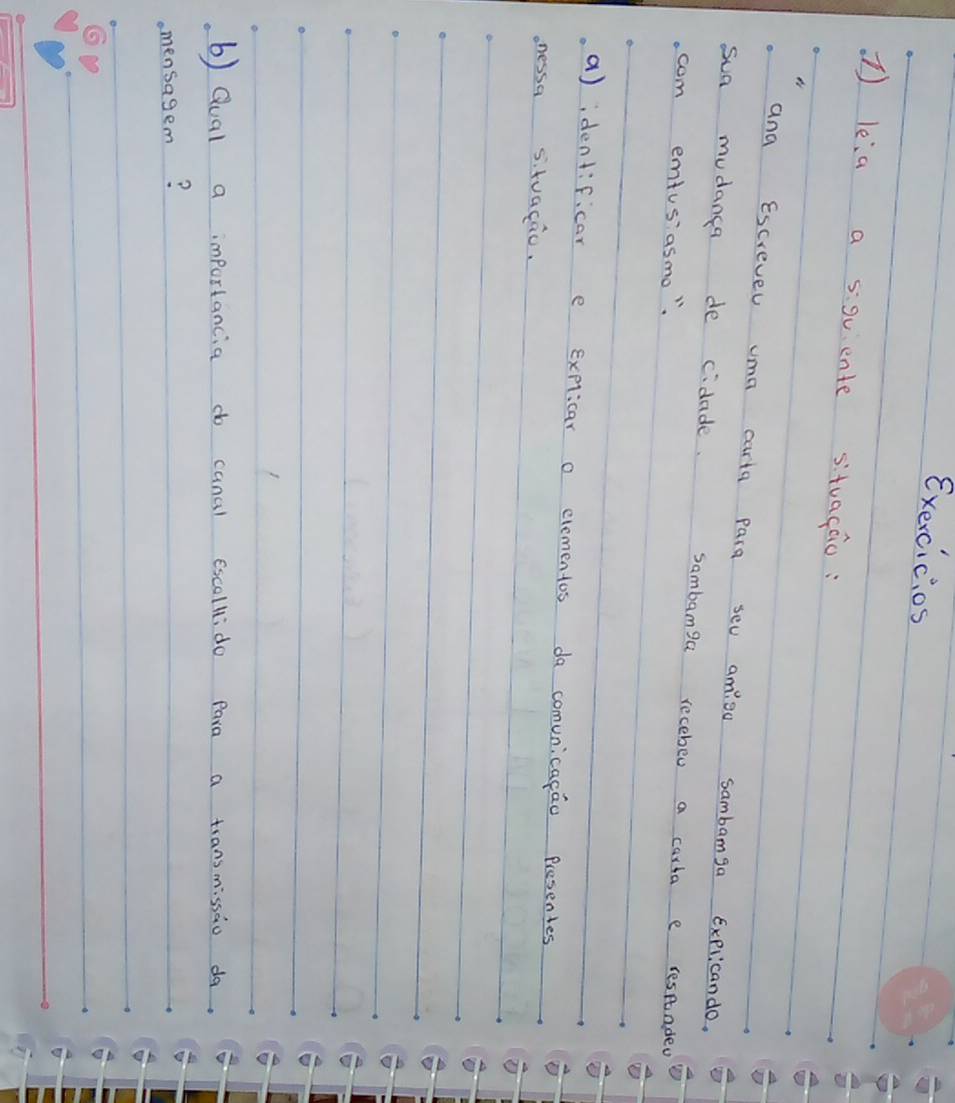 Exercícios
1) leia a siguiente situação:
" ana Escreveu uma carta Para seu amigo sambamga Explicando
sua mudança de cidade. sambamga recebeu a carta e respondeu
com emtusiasmo".
a) identificar e explicar o elementos da comunicação Presentes
nessa situação.
b) Qual a importância do canal escallido Para a transmissão da
mensagem?